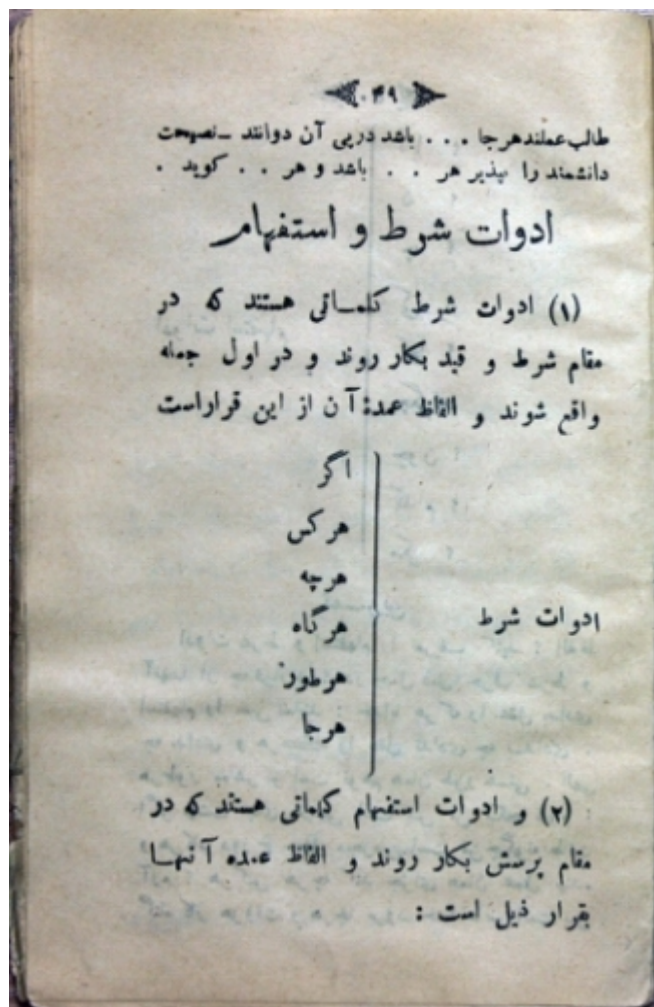 ۴۹
طالب عملند هر جا . . . باشد در پی آن دوانند ـ نصیحت
دانشمند را بپذیر هر . . باشد و هر . . کوید .
ادوات شرط و استفهام
(۱) ادوات شرط کلمـاتی هستند که در
مقام شرط و قید بکار روند و در اول جمله
واقع شوند و الفاظ عمدۀ آن از این قرار است
اگر
هر کس
هرچه
ادوات شرط
هرگاه
هرطور
هرجا
(۲) و ادوات استفهام کلماتی هستند که در
مقام پرسش بکار روند و الفاظ عمده آنهـا
بقرار ذیل است :